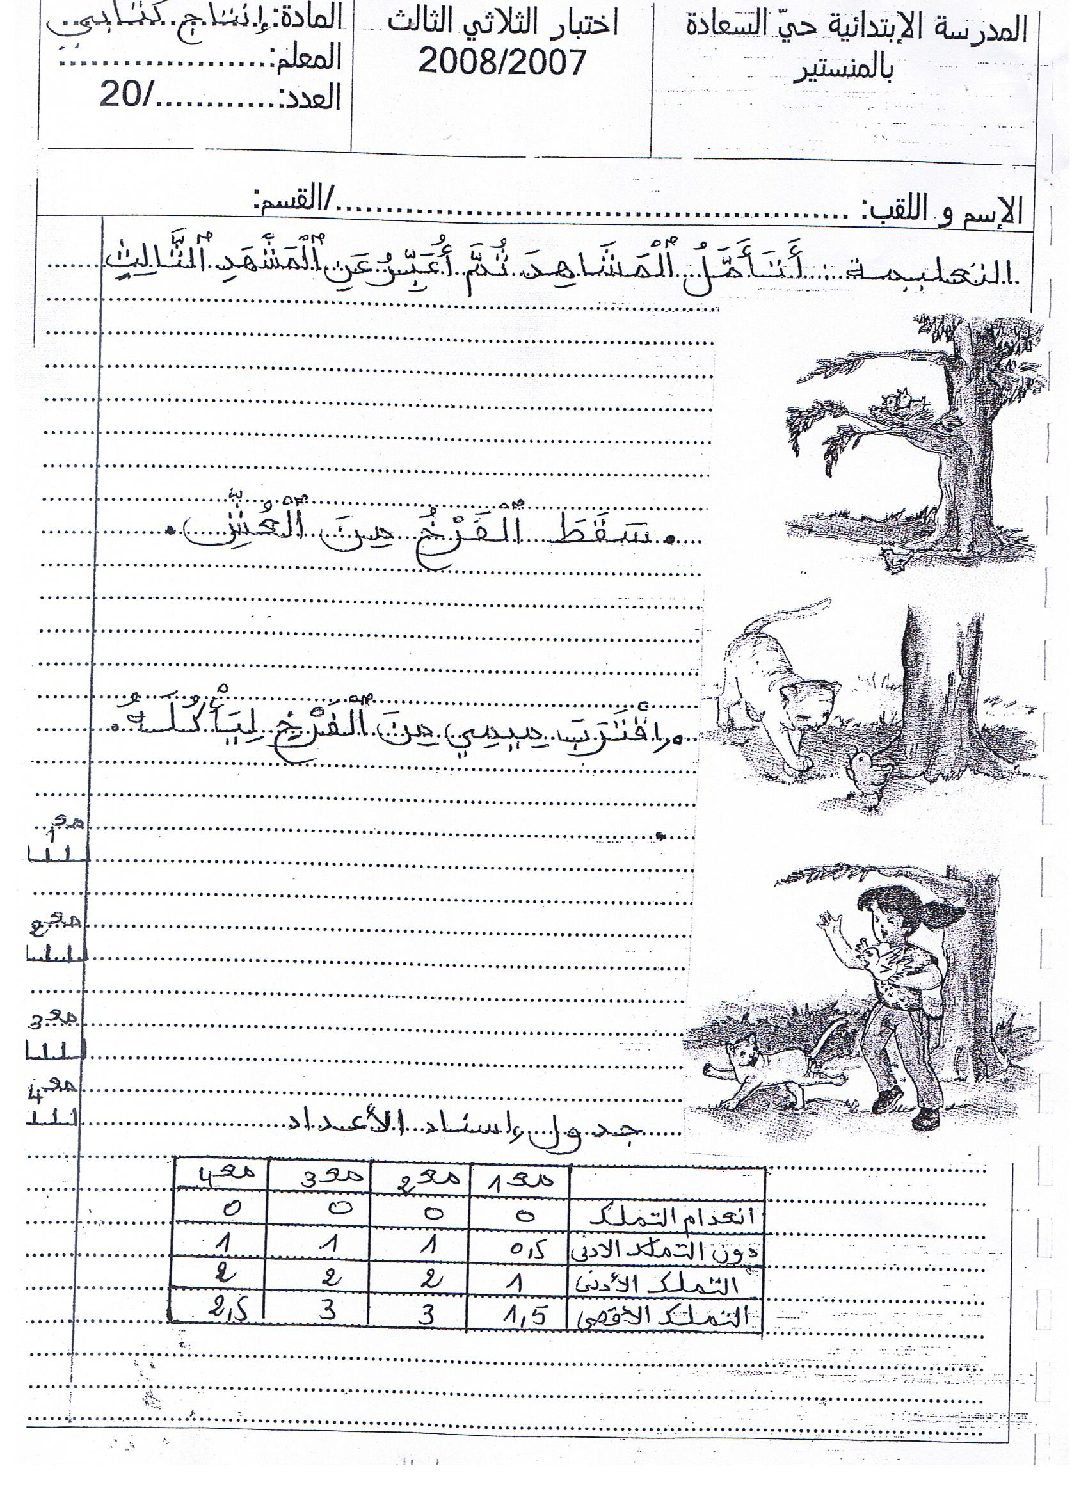 المدرسة الإبتدائية حيّ السّعادة
بالمنستير
اختبار الثلاثي الثالث
2008/2007
المادة: إنتاج كتابي
المعلم:.....................
العدد:............/20
الإسم و اللقب: ................................................/القسم:
التعليمة : أَتَأَمَّلُ الْمَشَاهِدَ ثُمَّ أُعَبِّرُ عَنِ الْمَشْهَدِ الثَّالِثِ
• سَقَطَ الْفَرْخُ مِنَ الْعُشِّ.
• اِقْتَرَبَ مِيمِي مِنَ الْفَرْخِ لِيَأْكُلَهُ.
•
مع1
مع2
مع3
مع4
جدول إسناد الأعداد
مع1 مع2 مع3 مع4
انعدام التملك 0 0 0 0
دون التملك الأدنى 0,5 1 1 1
التملك الأدنى 1 2 2 2
التملك الأقصى 1,5 3 3 2,5